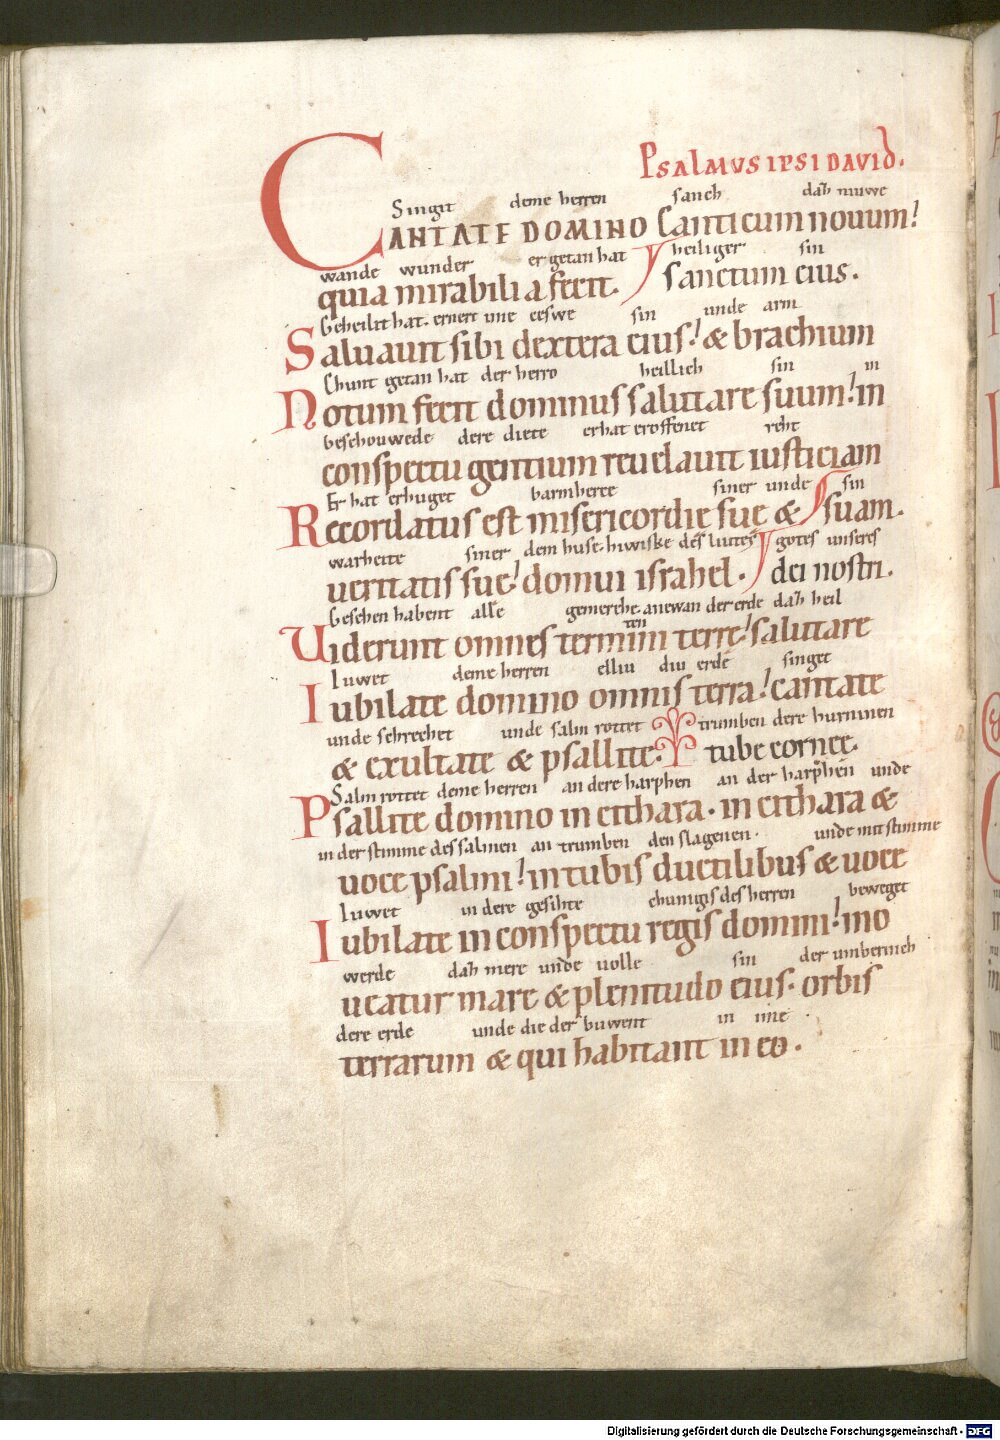 PSALMUS IPSI DAVID.
Singit deme herren sanch daz niuwe
CANTATE DOMINO Canticum nouum!
wande wunder er getan hat heiliger sin
quia mirabilia fecit. sanctum eius.
Geheilit hat. ernert ime ceswe sin unde arm
Saluauit sibi dextera eius! & brachium
Chunt getan hat der herro heillich sin in
Notum fecit dominus salutare suum! in
beschouwede dere diete er hat eroffenet reht
conspectu gentium reuelauit iusticiam
Er hat erhuget barmherce siner unde sin
Recordatus est misericordie sue & suam.
warheite siner dem huse. hiwiske des liutes gotes unseres
ueritatis sue! domui israhel. dei nostri.
Gesehen habent alle gemerche. anewan der erde daz heil
ten
Uiderunt omnes termini terre! salutare
Iuwet deme herren elliu diu erde singet
Iubilate domino omnis terra! cantate
unde schrechet unde salm rottet trumben dere hurninen
& exultate & psallite. tube cornee.
Salm rottet deme herren an dere harphen an der harphen unde
Psallite domino in cithara. in cithara &
in der stimme des salmen an trumben den slagenen. unde mit stimme
uoce psalmi! in tubis ductilibus & uoce
Iuwet in dere gesihte chunigis des herren beweget
Iubilate in conspectu regis domini! mo
werde daz mere unde uolle sin der umberinch
ueatur mare & plenitudo eius. orbis
dere erde unde die der buwent in ime
terrarum & qui habitant in eo.
Digitalisierung gefördert durch die Deutsche Forschungsgemeinschaft - DFG